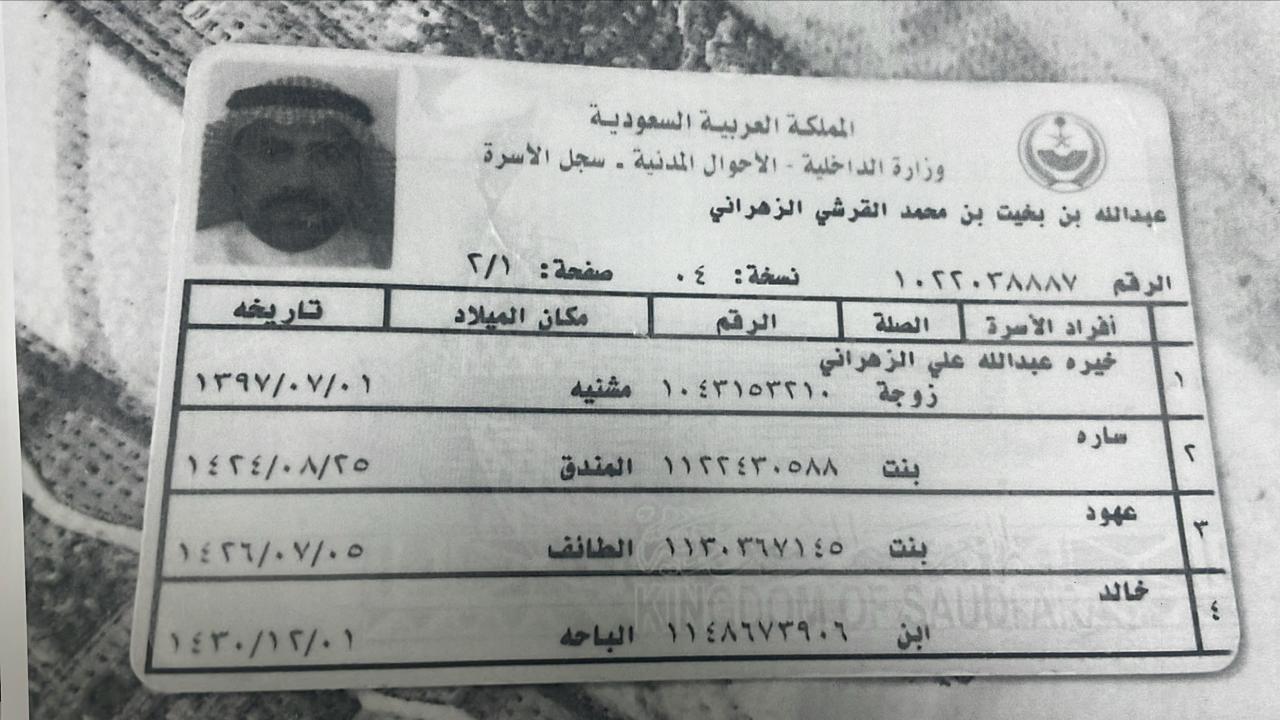 المملكة العربية السعودية
وزارة الداخلية - الأحوال المدنية - سجل الأسرة
عبدالله بن بخيت بن محمد القرشي الزهراني
الرقم ١٠٢٢٠٣٨٨٨٧ نسخة: ٠٤ صفحة: ٢/١
أفراد الأسرة الصلة الرقم مكان الميلاد تاريخه
خيره عبدالله علي الزهراني
١ زوجة ١٠٤٣١٥٣٢١٠ مشنيه ١٣٩٧/٠٧/٠١
ساره
٢ بنت ١١٢٢٤٣٠٥٨٨ المندق ١٤٢٤/٠٨/٢٥
عهود
٣ بنت ١١٣٠٣٦٧١٤٥ الطائف ١٤٢٦/٠٧/٠٥
خالد
٤ ابن ١١٤٨٦٧٣٩٠٦ الباحه ١٤٣٠/١٢/٠١
KINGDOM OF SAUDI ARA